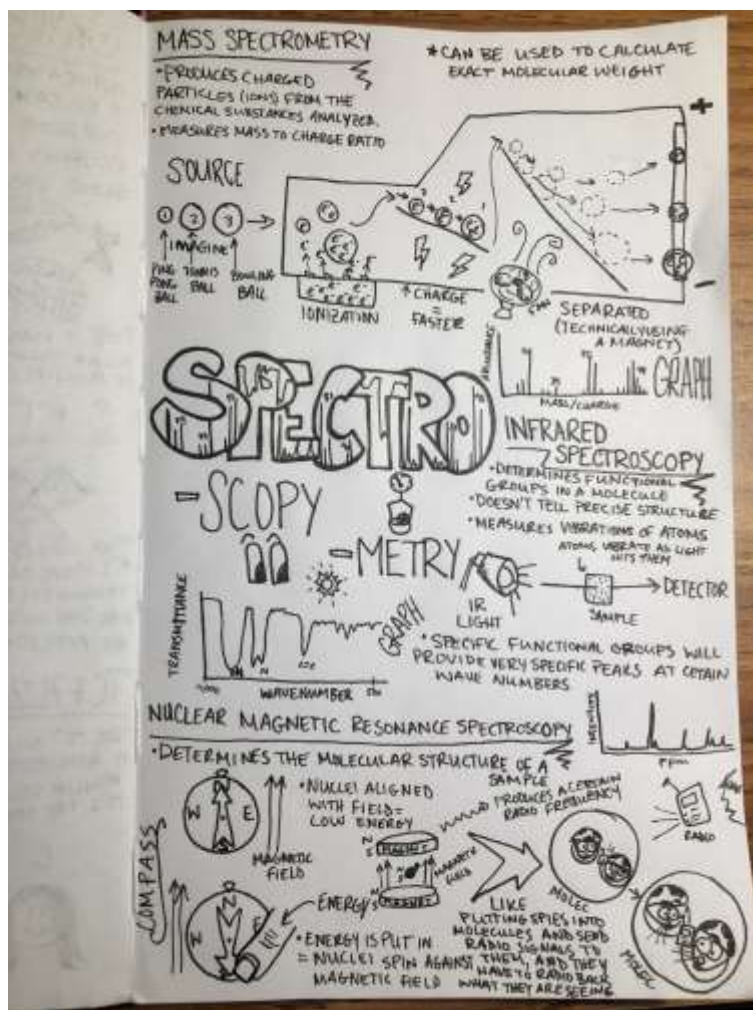 MASS SPECTROMETRY
* CAN BE USED TO CALCULATE
EXACT MOLECULAR WEIGHT
• PRODUCES CHARGED
PARTICLES (IONS) FROM THE
CHEMICAL SUBSTANCES ANALYZED.
• MEASURES MASS TO CHARGE RATIO
SOURCE
1 2 3
IMAGINE
PING PONG BALL
TENNIS BALL
BOWLING BALL
IONIZATION
↑ CHARGE
=
FASTER
FAN
+
-
SEPARATED
(TECHNICALLY USING
A MAGNET)
MASS/CHARGE
GRAPH
SPECTRO
-SCOPY
-METRY
INFRARED
SPECTROSCOPY
• DETERMINES FUNCTIONAL
GROUPS IN A MOLECULE
• DOESN'T TELL PRECISE STRUCTURE
• MEASURES VIBRATIONS OF ATOMS
ATOMS VIBRATE AS LIGHT
HITS THEM
IR
LIGHT
SAMPLE
DETECTOR
TRANSMITTANCE
WAVENUMBER
GRAPH
• SPECIFIC FUNCTIONAL GROUPS WILL
PROVIDE VERY SPECIFIC PEAKS AT CETAIN
WAVE NUMBERS
NUCLEAR MAGNETIC RESONANCE SPECTROSCOPY
INTENSITY
PPM
• DETERMINES THE MOLECULAR STRUCTURE OF A
SAMPLE
W E
MAGNETIC
FIELD
• NUCLEI ALIGNED
WITH FIELD =
LOW ENERGY
PRODUCES A CERTAIN
RADIO FREQUENCY
RADIO
MAGNET
MAGNETIC
FIELD
MAGNET
MOLEC
MOLEC
COMPASS
ENERGY
• ENERGY IS PUT IN
= NUCLEI SPIN AGAINST
MAGNETIC FIELD
LIKE
PUTTING SPIES INTO
MOLECULES AND SEND
RADIO SIGNALS TO
THEM, AND THEY
HAVE TO RADIO BACK
WHAT THEY ARE SEEING